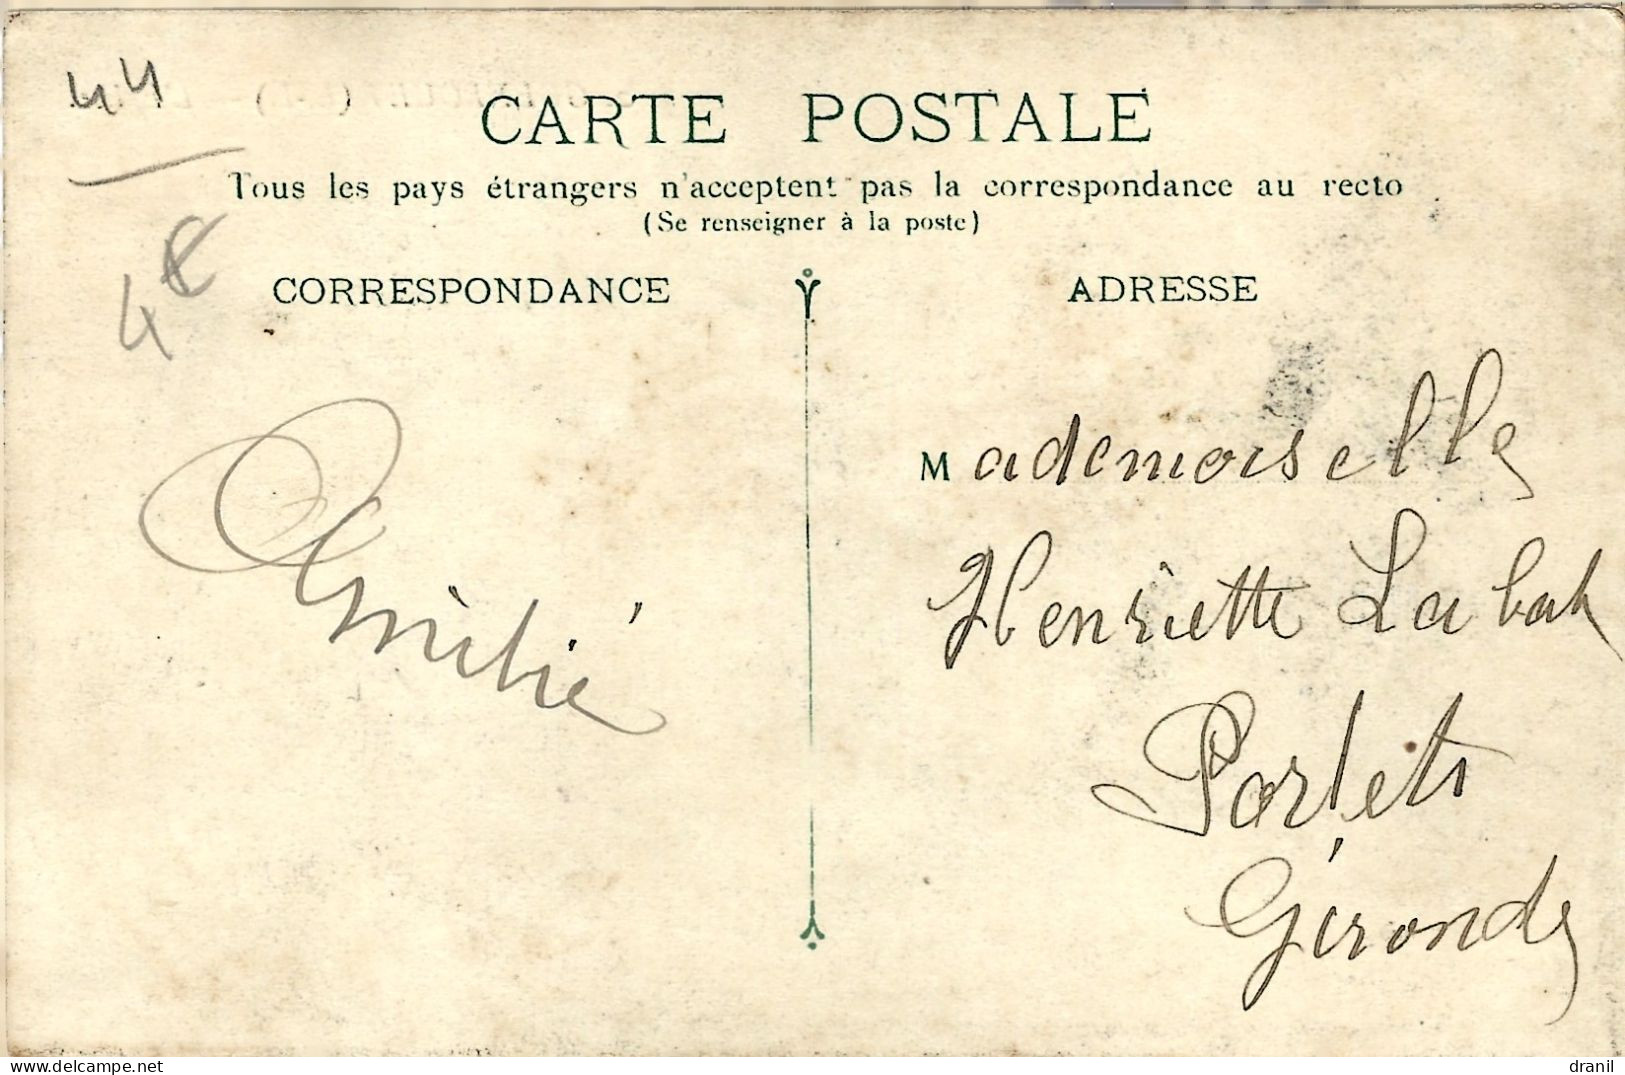 44
CARTE POSTALE
Tous les pays étrangers n'acceptent pas la correspondance au recto
(Se renseigner à la poste)
4€
CORRESPONDANCE
Amitié
ADRESSE
Mademoiselle
Henriette Labat
Portets
Gironde
delcampe.net
dranil